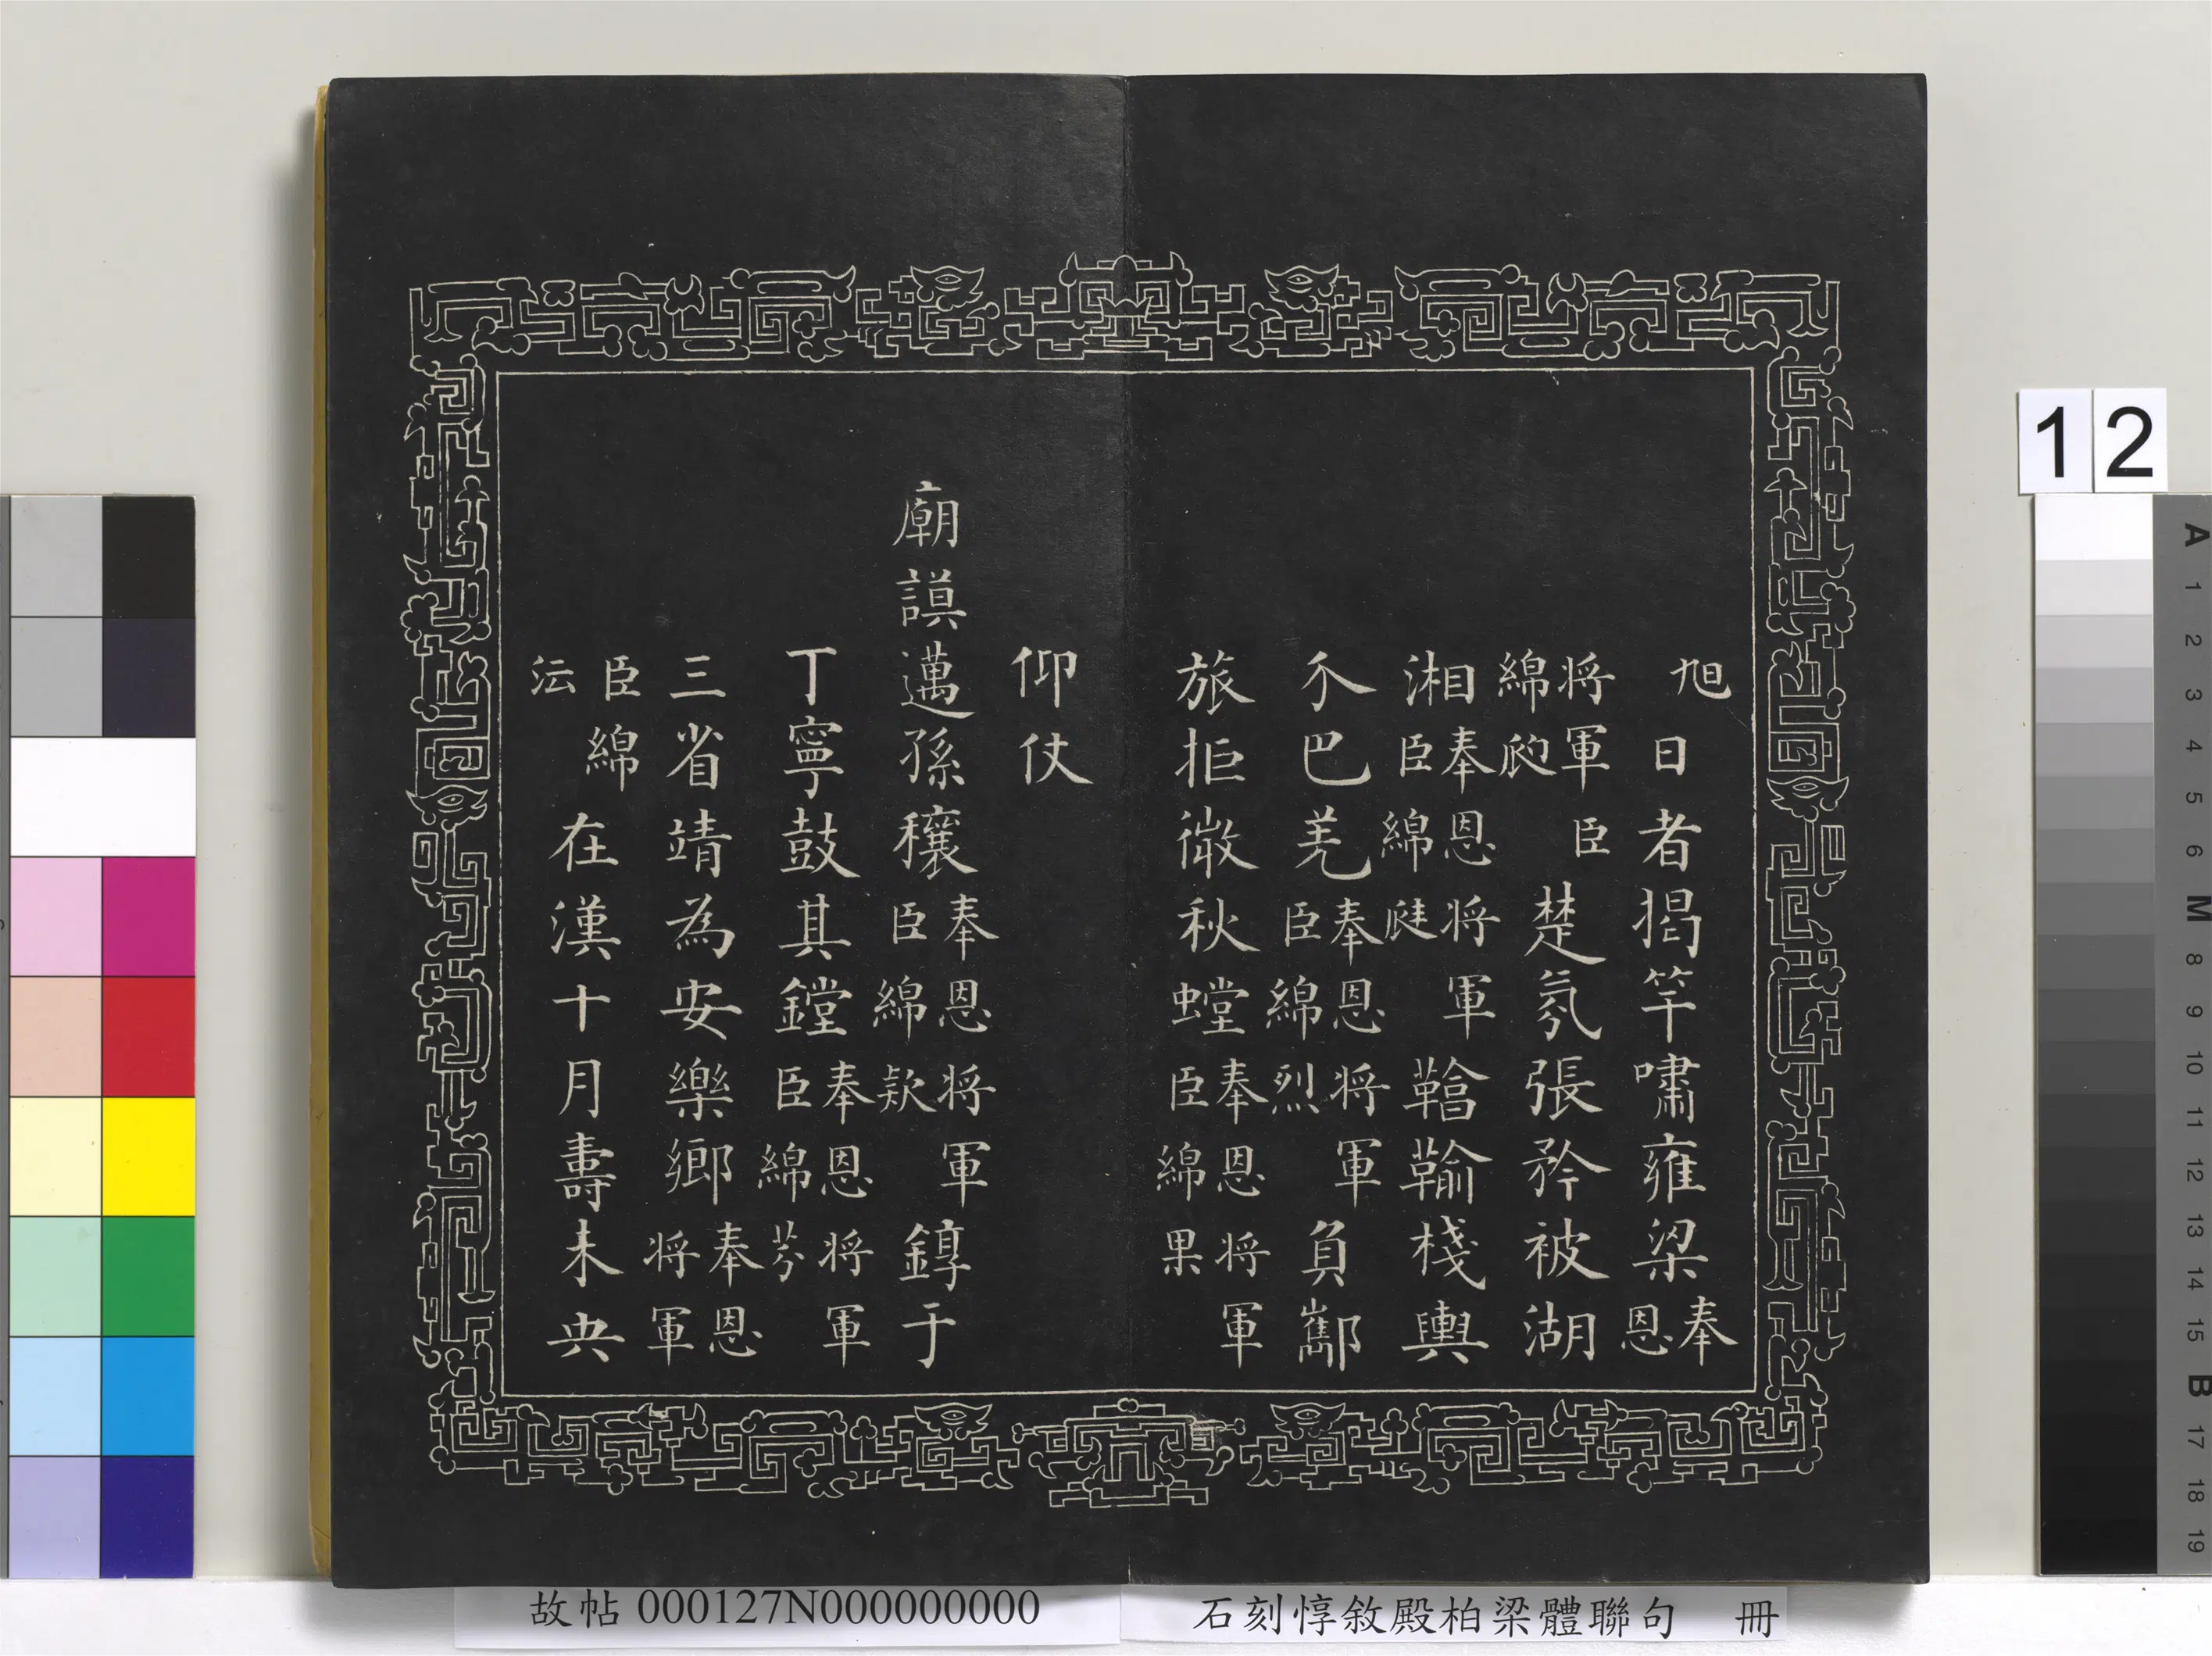 旭日者揭竿嘯雍梁奉恩
将軍臣綿楚氛張矜被湖
湘奉恩将軍臣綿棧輿
尒巴羌奉恩将軍臣綿烈負酅
旅拒徵秋螳奉恩将軍臣綿果
仰仗
廟謨邁孫穰奉恩将軍臣綿欵錞于
丁寧鼓其鏜奉恩将軍臣綿芬
三省靖為安樂鄉奉恩将軍
臣綿沄在漢十月壽未央
12
故帖 000127N000000000
石刻惇敘殿柏梁體聯句 冊
A 1 2 3 4 5 6 M 8 9 10 11 12 13 14 15 B 17 18 19